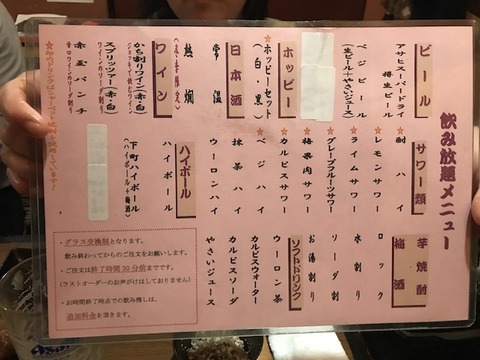 飲み放題メニュー
ビール
アサヒスーパードライ
樽生ビール
ベジビール
(生ビール+やさいジュース)
ホッピー
ホッピーセット
(白・黒)
日本酒
常温
熱燗
(冬季限定)
ワイン
かち割りワイン(赤・白)
スプリッツァー(赤・白)
ワインのソーダ割り
赤玉パンチ
サワー類
酎ハイ
レモンサワー
ライムサワー
グレープフルーツサワー
梅果肉サワー
カルピスサワー
ベジハイ
抹茶ハイ
ウーロンハイ
ハイボール
ハイボール
下町ハイボール
(ハイボール+梅酒)
芋焼酎
梅酒
ロック
水割り
ソーダ割
お湯割り
ソフトドリンク
ウーロン茶
カルピスウォーター
カルピスソーダ
やさいジュース
・グラス交換制となります。
飲み終わってからのご注文をお願いします。
・ご注文は終了時間30分前までです。
(ラストオーダーのお声がけはしておりません)
・お時間終了時点での飲み残しは、
追加料金を頂きます。